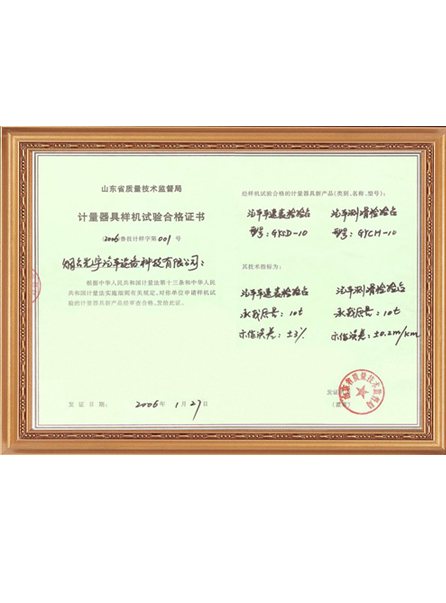 山东省质量技术监督局
计量器具样机试验合格证书
(2006)鲁技计样字第001号
汽车设备科技有限公司:
根据中华人民共和国计量法第十三条和中华人民
共和国计量法实施细则有关规定,对你单位申请样机试
验的计量器具新产品经审查合格,发给此证。
发 证 日 期: 2006年 1月27日
经样机试验合格的计量器具新产品(类别、名称、型号):
汽车车速表检验台 汽车侧滑检验台
型号:GYSD-10 型号:GYCH-10
其技术指标为:
汽车车速表检验台 汽车侧滑检验台
承载质量:10t 承载质量:10t
示值误差:±3% 示值误差:±0.2m/km
发证
(盖章)
山东省质量技术监督局